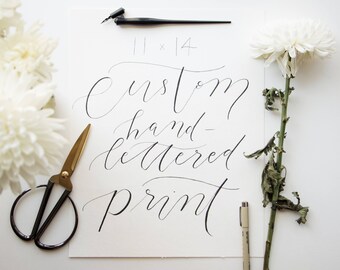 11 x 14
custom
hand-
lettered
print